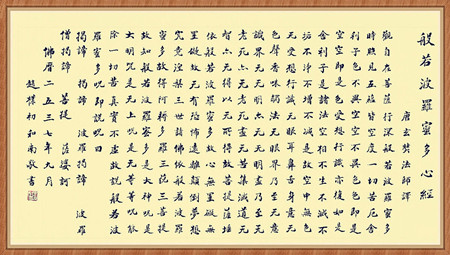 般若波羅蜜多心經
唐玄奘法師譯
觀自在菩薩行深般若波羅蜜多
時照見五蘊皆空度一切苦厄舍
利子色不異空空不異色色即是
空空即是色受想行識亦復如是
舍利子是諸法空相不生不滅不
垢不淨不增不減是故空中无
色无受想行識无眼耳鼻舌身意无
色聲香味觸法无眼界乃至无意
識界无无明亦无无明盡乃至无
老死亦无老死盡无苦集滅道无
智亦无得以无所得故菩提薩埵
依般若波羅蜜多故心无罣礙无
罣礙故无有恐怖遠離顛倒夢想
究竟涅槃三世諸佛依般若波羅
蜜多故得阿耨多羅三藐三菩提
故知般若波羅蜜多是大神咒是
大明咒是无上咒是无等等咒能
除一切苦真實不虛故說般若波
羅蜜多咒即說咒曰
揭諦 揭諦 波羅揭諦 波羅
僧揭諦 菩提 薩婆訶
佛曆二五三七年九月
趙樸初和南敬書